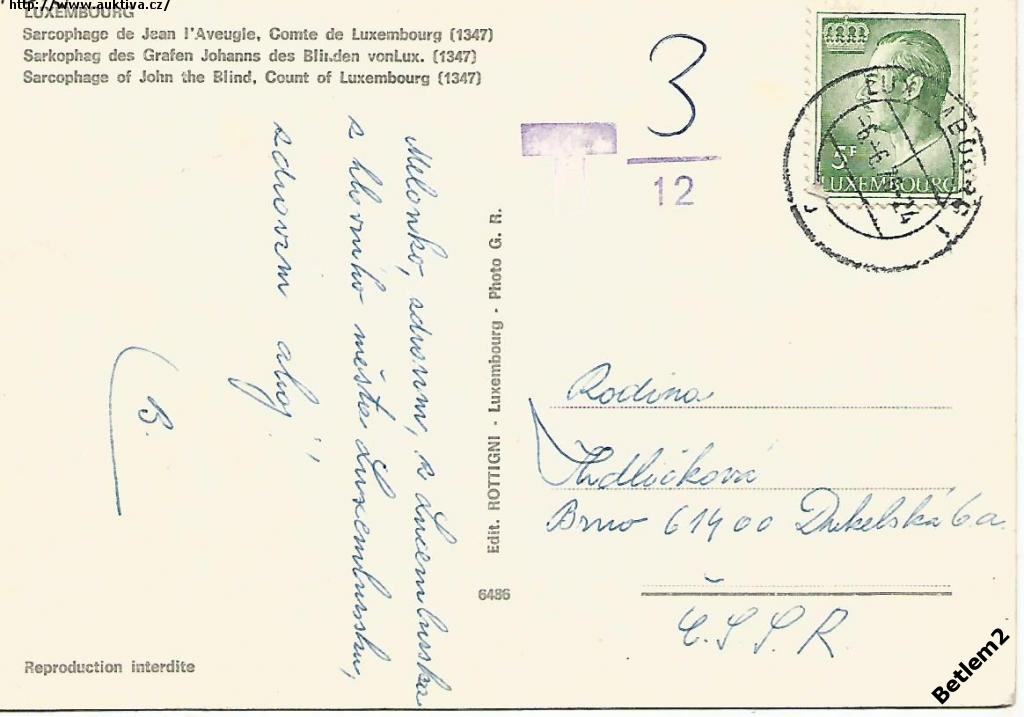 http://www.auktiva.cz/
LUXEMBOURG
Sarcophage de Jean l'Aveugle, Comte de Luxembourg (1347)
Sarkophag des Grafen Johanns des Blinden vonLux. (1347)
Sarcophage of John the Blind, Count of Luxembourg (1347)
T
3
12
5F
LUXEMBOURG
LUXEMBOURG
z Lucemburska
z hlavního města Luxemburku,
zdravím ahoj!
B.
Edit. ROTTIGNI - Luxembourg - Photo G. R.
6486
Rodina
Brno 61400 Dukelská 6a
Č.S.S.R.
Reproduction interdite
Betlem2